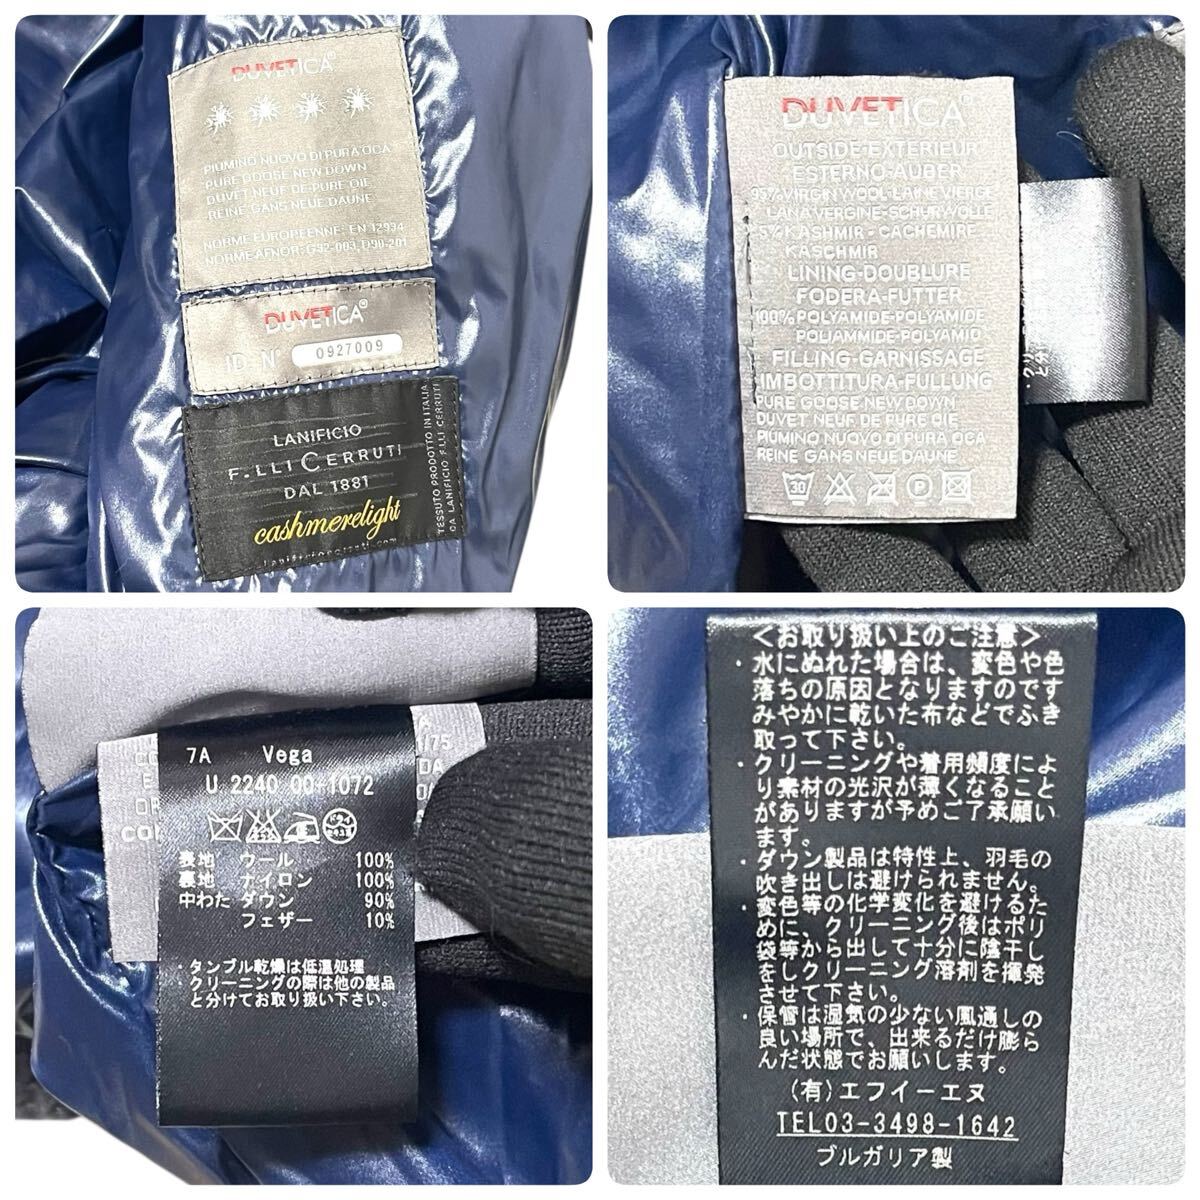 DUVETICA
PIUMINO NUOVO DI PURA OCA
PURE GOOSE NEW DOWN
DUVET NEUF DE PURE OIE
REINE GANS NEUE DAUNE
NORME EUROPEENNE: EN 12934
NORME AFNOR: G92-003, D90-201
DUVETICA
ID N° 0927009
LANIFICIO
F.LLI CERRUTI
DAL 1881
cashmerelight
lanificiocerruti.com
TESSUTO PRODOTTO IN ITALIA
LANIFICIO F.LLI CERRUTI
DUVETICA
OUTSIDE-EXTERIEUR
ESTERNO-AUBER
95% VIRGIN WOOL-LAINE VIERGE
LANA VERGINE-SCHURWOLLE
5% KASHMIR - CACHEMIRE
KASCHMIR
LINING-DOUBLURE
FODERA-FUTTER
100% POLYAMIDE-POLYAMIDE
POLIAMMIDE-POLYAMID
FILLING-GARNISSAGE
IMBOTTITURA-FULLUNG
PURE GOOSE NEW DOWN
DUVET NEUF DE PURE OIE
PIUMINO NUOVO DI PURA OCA
REINE GANS NEUE DAUNE
30
P
7A Vega
U.2240.00+1072
表地 ウール 100%
裏地 ナイロン 100%
中わた ダウン 90%
フェザー 10%
・タンブル乾燥は低温処理
クリーニングの際は他の製品
と分けてお取り扱い下さい。
<お取り扱い上のご注意>
・水にぬれた場合は、変色や色
落ちの原因となりますのです
みやかに乾いた布などでふき
取って下さい。
・クリーニングや着用頻度によ
り素材の光沢が薄くなること
がありますが予めご了承願い
ます。
・ダウン製品は特性上、羽毛の
吹き出しは避けられません。
・変色等の化学変化を避けるた
めに、クリーニング後はポリ
袋等から出して十分に陰干し
をしクリーニング溶剤を揮発
させて下さい。
・保管は湿気の少ない風通しの
良い場所で、出来るだけ膨ら
んだ状態でお願いします。
(有)エフイーエヌ
TEL03-3498-1642
ブルガリア製